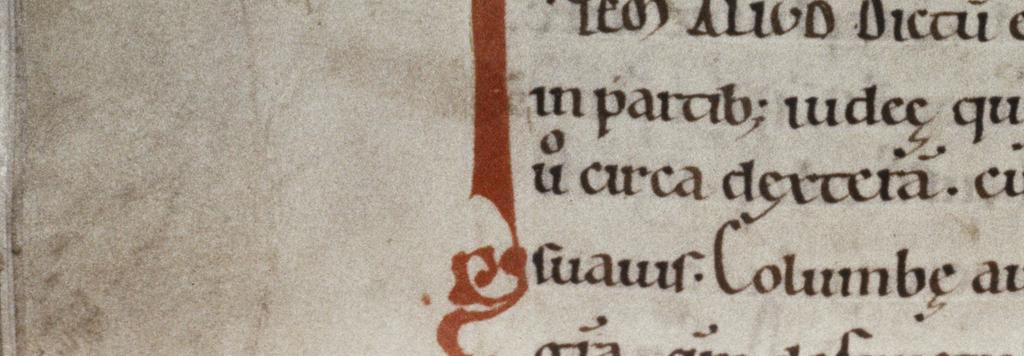 ITEM ALIUD Dictū
in partib; iudeę qu
uͦ circa dexterā. cu
suauis. Columbę au